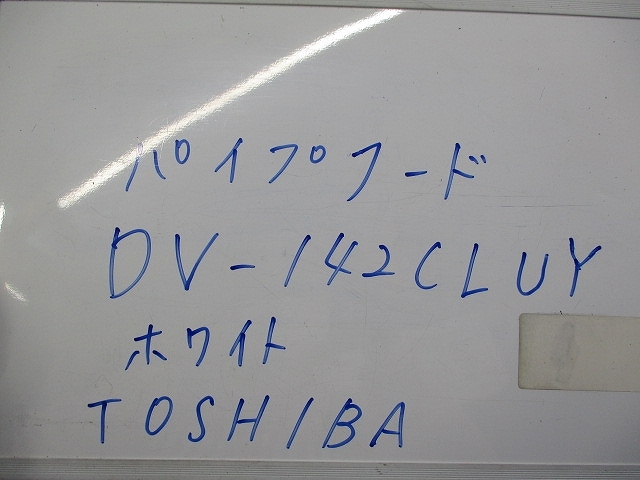 パイプフード
DV-142CLUY
ホワイト
TOSHIBA